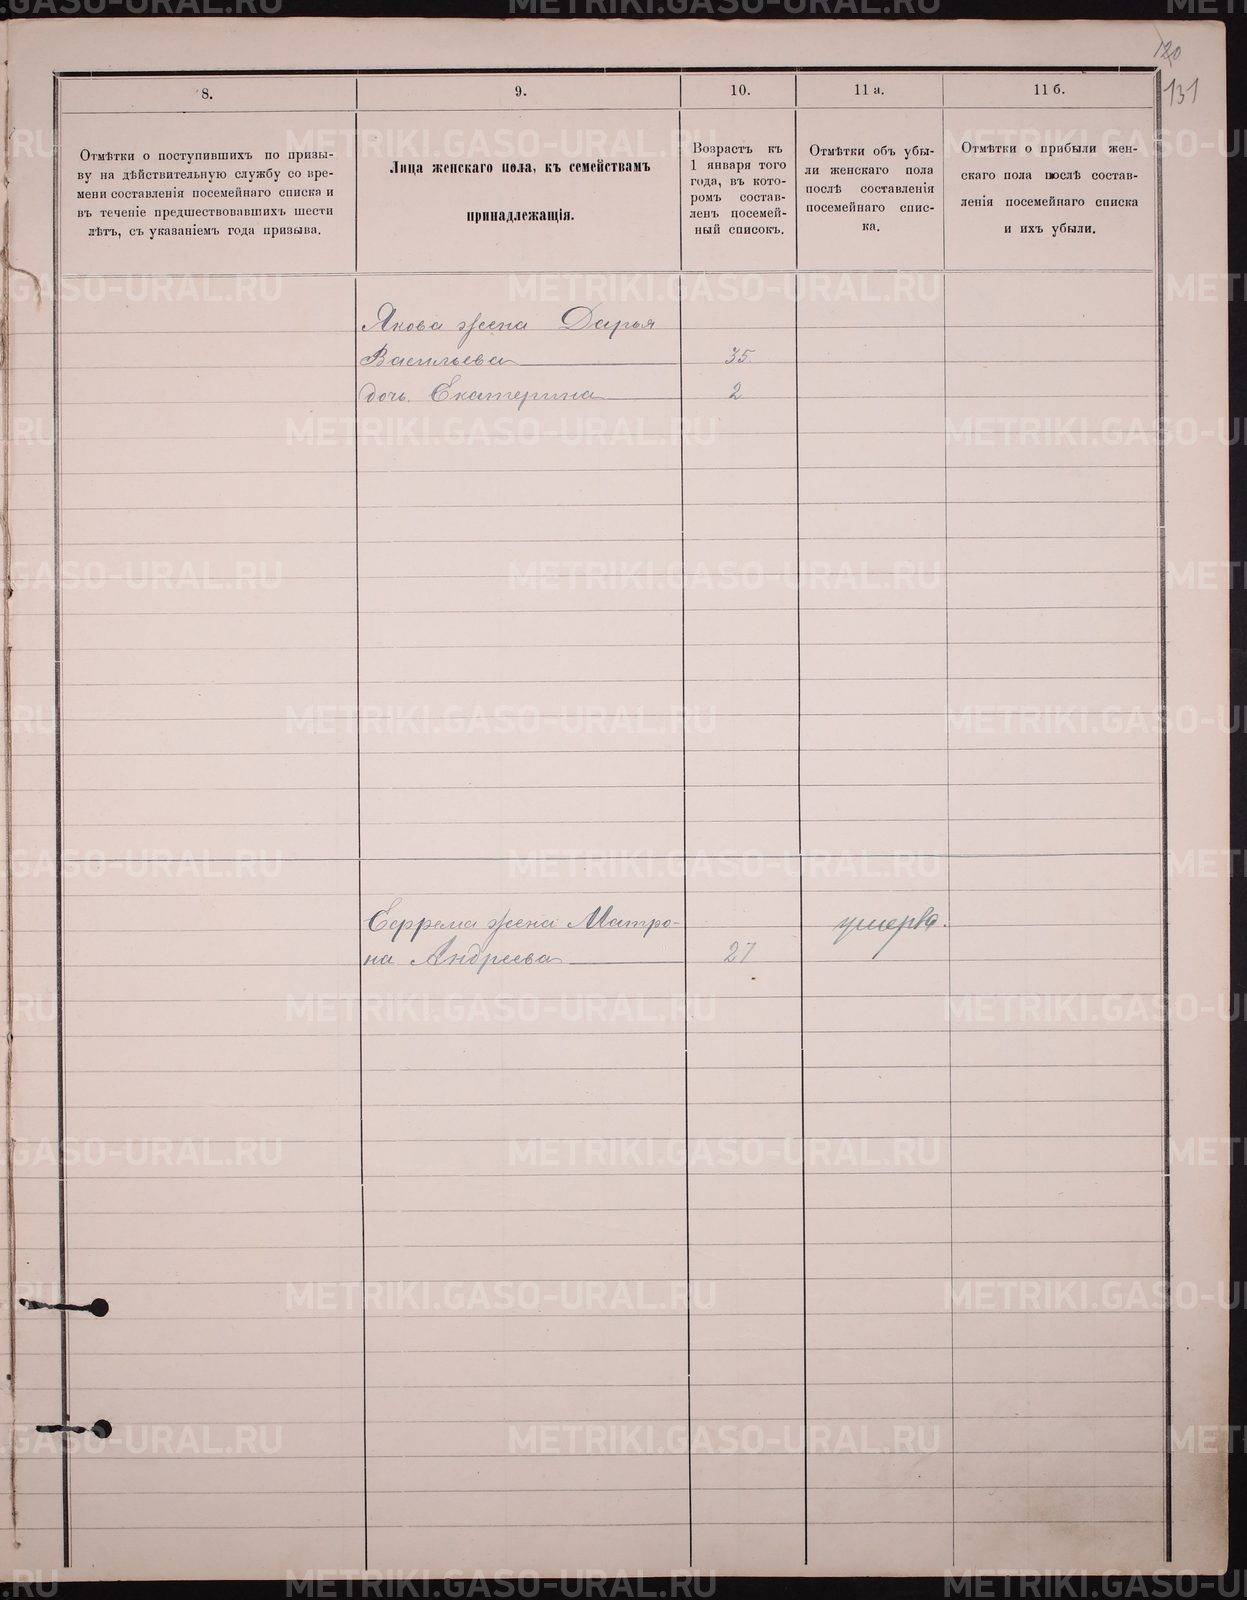 120
131
8.
9.
10.
11 а.
11 б.
Отмѣтки о поступившихъ по призы-
ву на дѣйствительную службу со вре-
мени составленія посемейнаго списка и
въ теченіе предшествовавшихъ шести
лѣтъ, съ указаніемъ года призыва.
Лица женскаго пола, къ семействамъ
принадлежащія.
Возрастъ къ
1 января того
года, въ кото-
ромъ состав-
ленъ посемей-
ный списокъ.
Отмѣтки объ убы-
ли женскаго пола
послѣ составленія
посемейнаго спис-
ка.
Отмѣтки о прибыли жен-
скаго пола послѣ состав-
ленія посемейнаго списка
и ихъ убыли.
Якова жена Дарья
Васильева 35
дочь Екатерина 2
жена Матро-
на Андреева 27
умерла.
METRIKI.GASO-URAL.RU